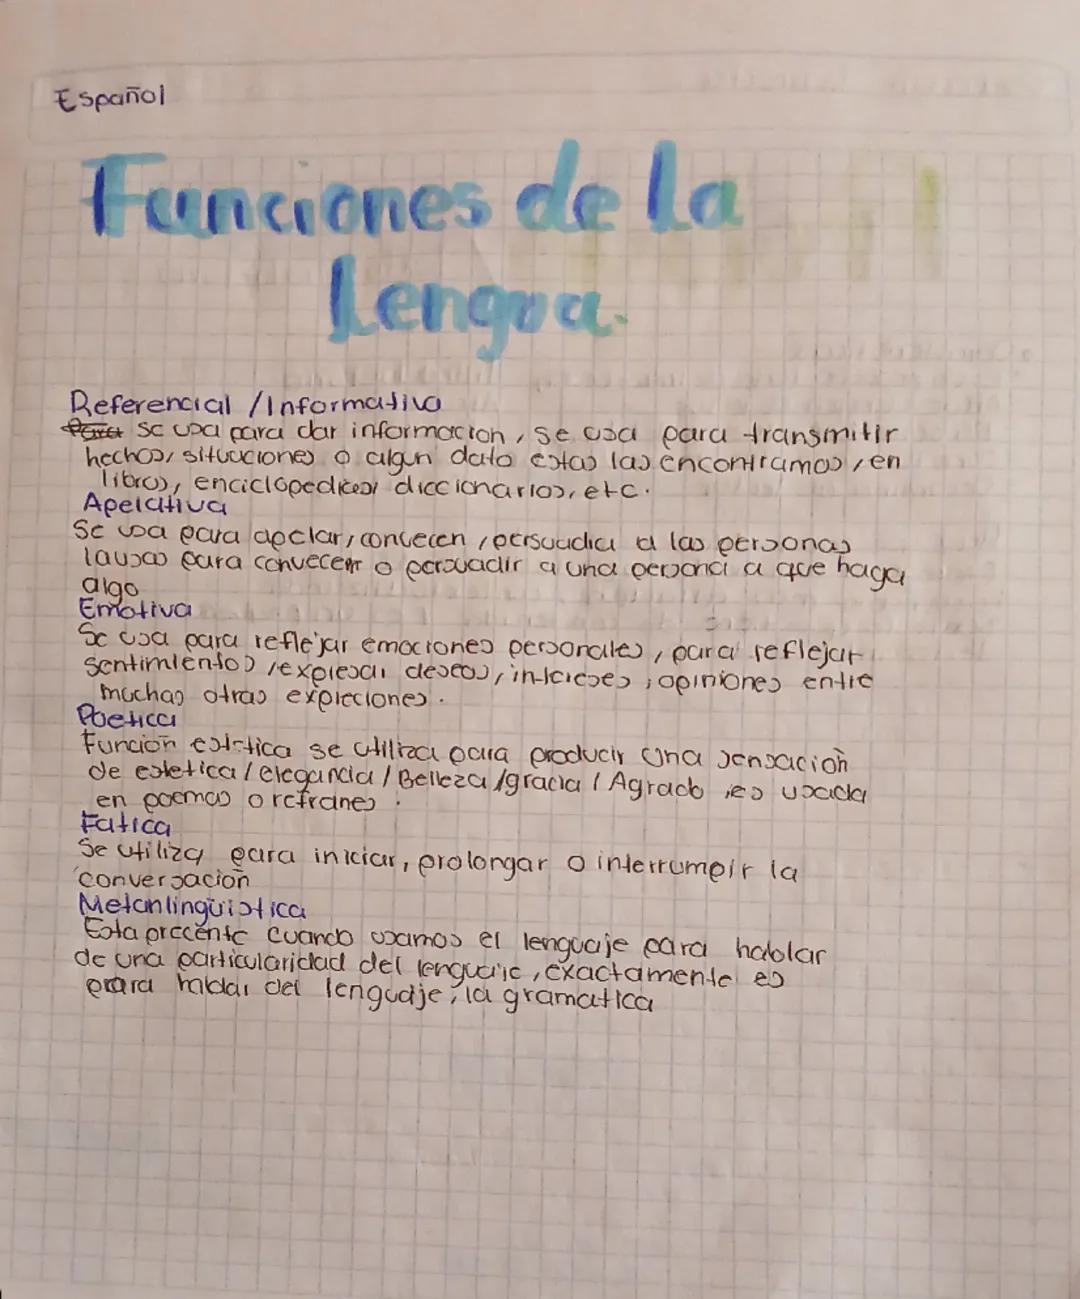 Español
Funciones de la
Lengua.
Referencial /Informativa
Para se usa para dar informacion, se usa para transmitir
hechos, situaciones o algun dato estas las encontramos, en
libros, enciclopedicas, diccionarios, etc.
Apelativa
Se usa para apelar, convecen, persuadia a las personas
la usas para convecer o persuadir a una persona a que haga
algo
Emotiva
Se usa para reflejar emociones personales, para reflejar
sentimientos, expresar deseos, intereses, opiniones entre
muchas otras expreciones.
Poetica
Función estetica se utiliza para producir una sensación
de estetica/elegancia/Belleza/gracia/Agrado, es usada
en poemas o refranes.
Fatica
Se utiliza para iniciar, prolongar o interrumpir la
conversación
Metanlingüistica
Esta precente cuando usamos el lenguaje para hablar
de una particularidad del lenguaje, exactamente es
para hablar del lenguaje, la gramatica